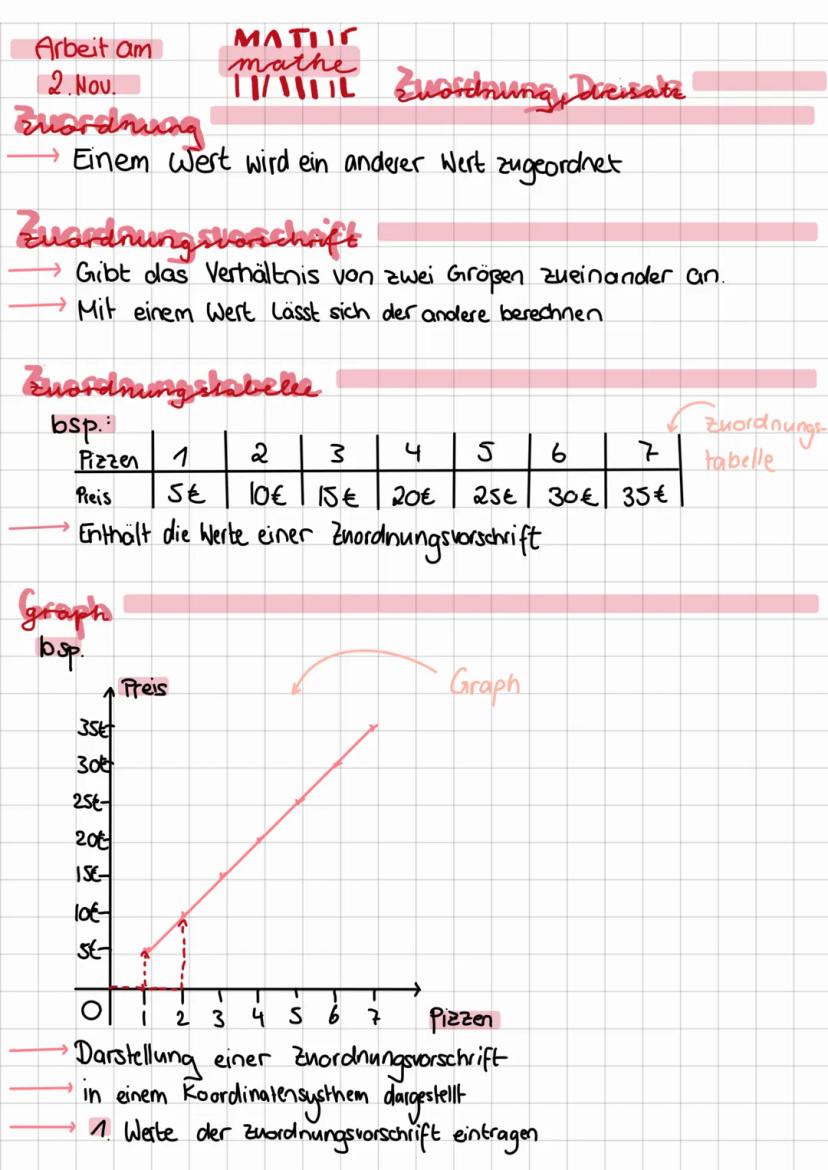 Arbeit am
2. Nov.
MATHE
mathe
MATHE
Zuordnung, Dreisatz
Zuordnung
→ Einem Wert wird ein anderer Wert zugeordnet
Zuordnungsvorschrift
→ Gibt das Verhältnis von zwei Größen zueinander an.
→ Mit einem Wert lässt sich der andere berechnen
Zuordnungstabelle
bsp.:
Zuordnungs-
tabelle
Pizzen 1 2 3 4 5 6 7
Preis 5€ 10€ 15€ 20€ 25€ 30€ 35€
→ Enthält die Werte einer Zuordnungsvorschrift
Graph
bsp.
Graph
Preis
35€
30€
25€
20€
15€
10€
5€
0 1 2 3 4 5 6 7 Pizzen
→ Darstellung einer Zuordnungsvorschrift
→ in einem Koordinatensysthem dargestellt
→ 1. Werte der Zuordnungsvorschrift eintragen